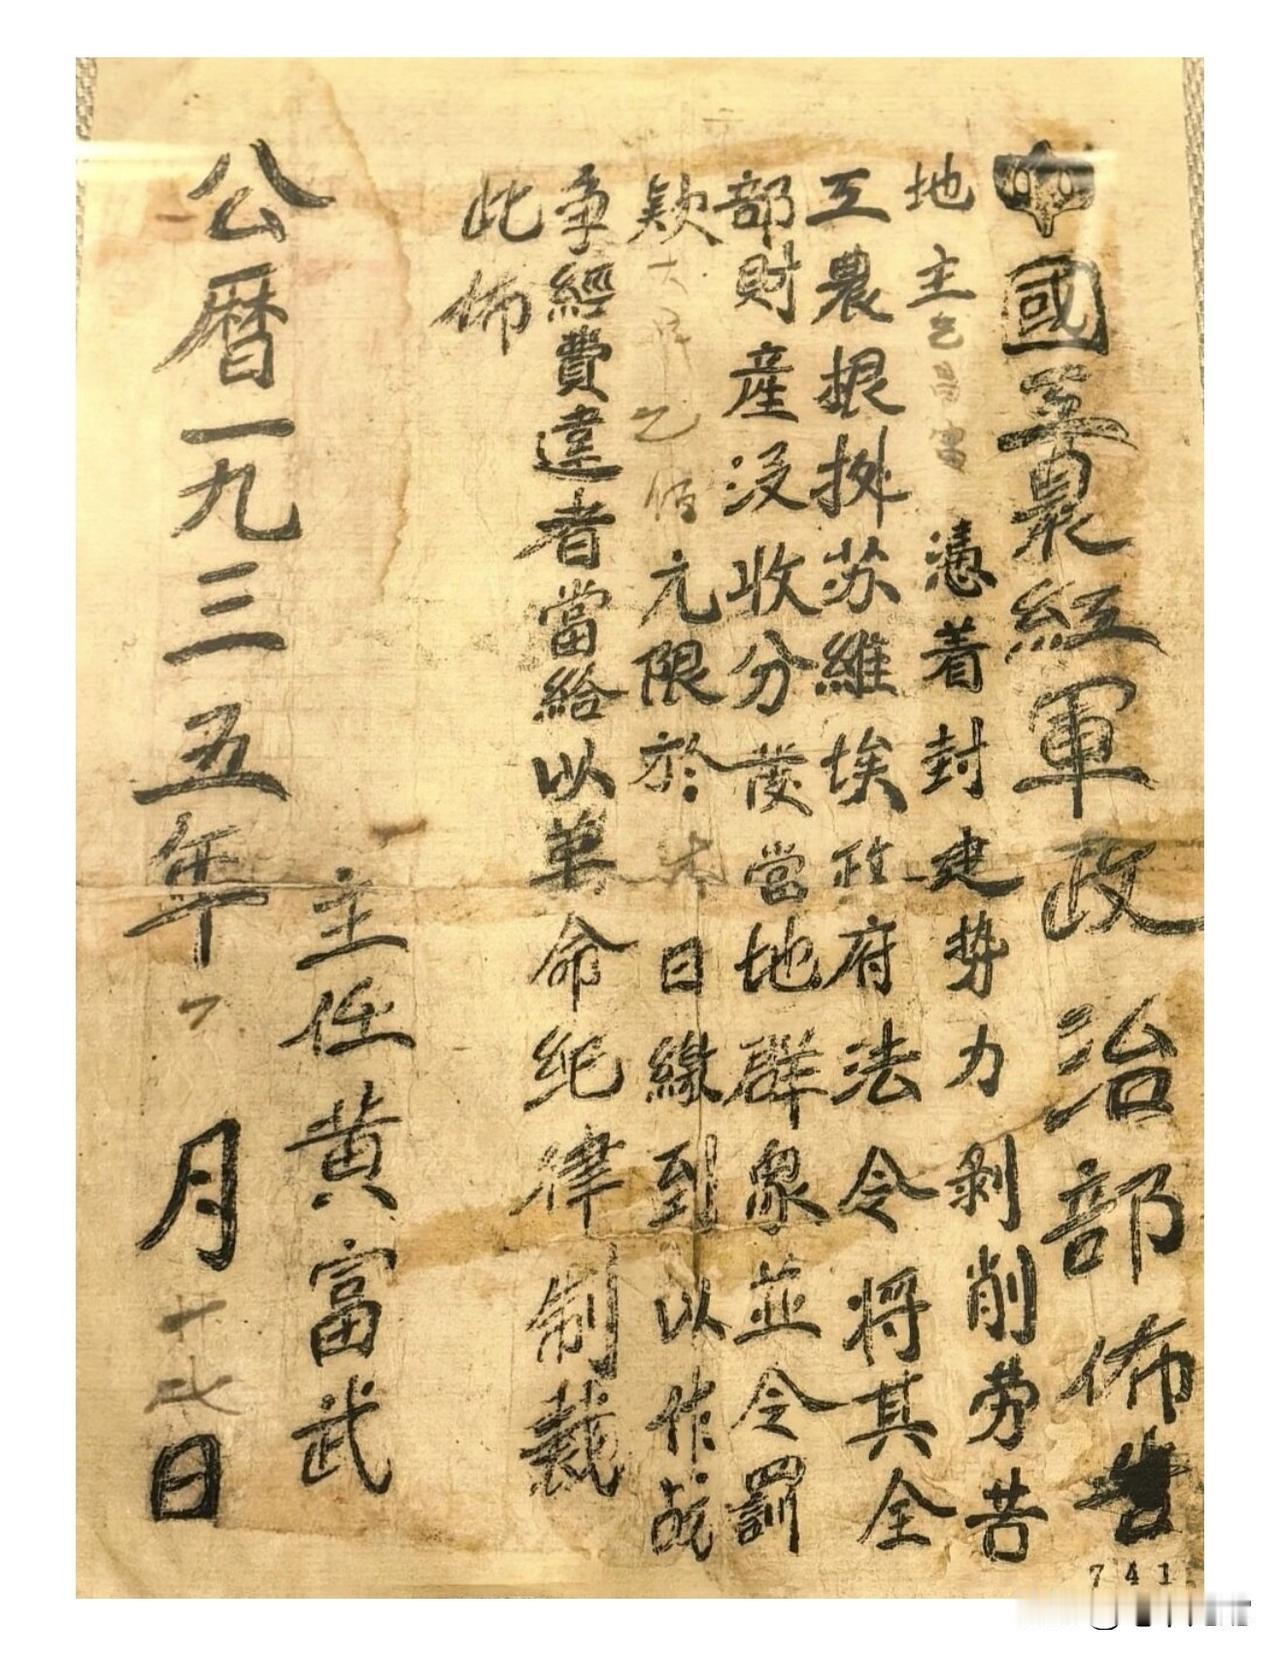 中國工農紅軍政治部佈告
地主 富 憑着封建勢力剥削劳苦
工農根拠苏維埃政府法令将其全
部財産没收分發當地群衆並令罰
欵大洋乙佰元限於 日繳到以作战
争經費違者當給以革命纪律制裁
此佈
主任黄富武
公曆一九三五年 月十 日
741